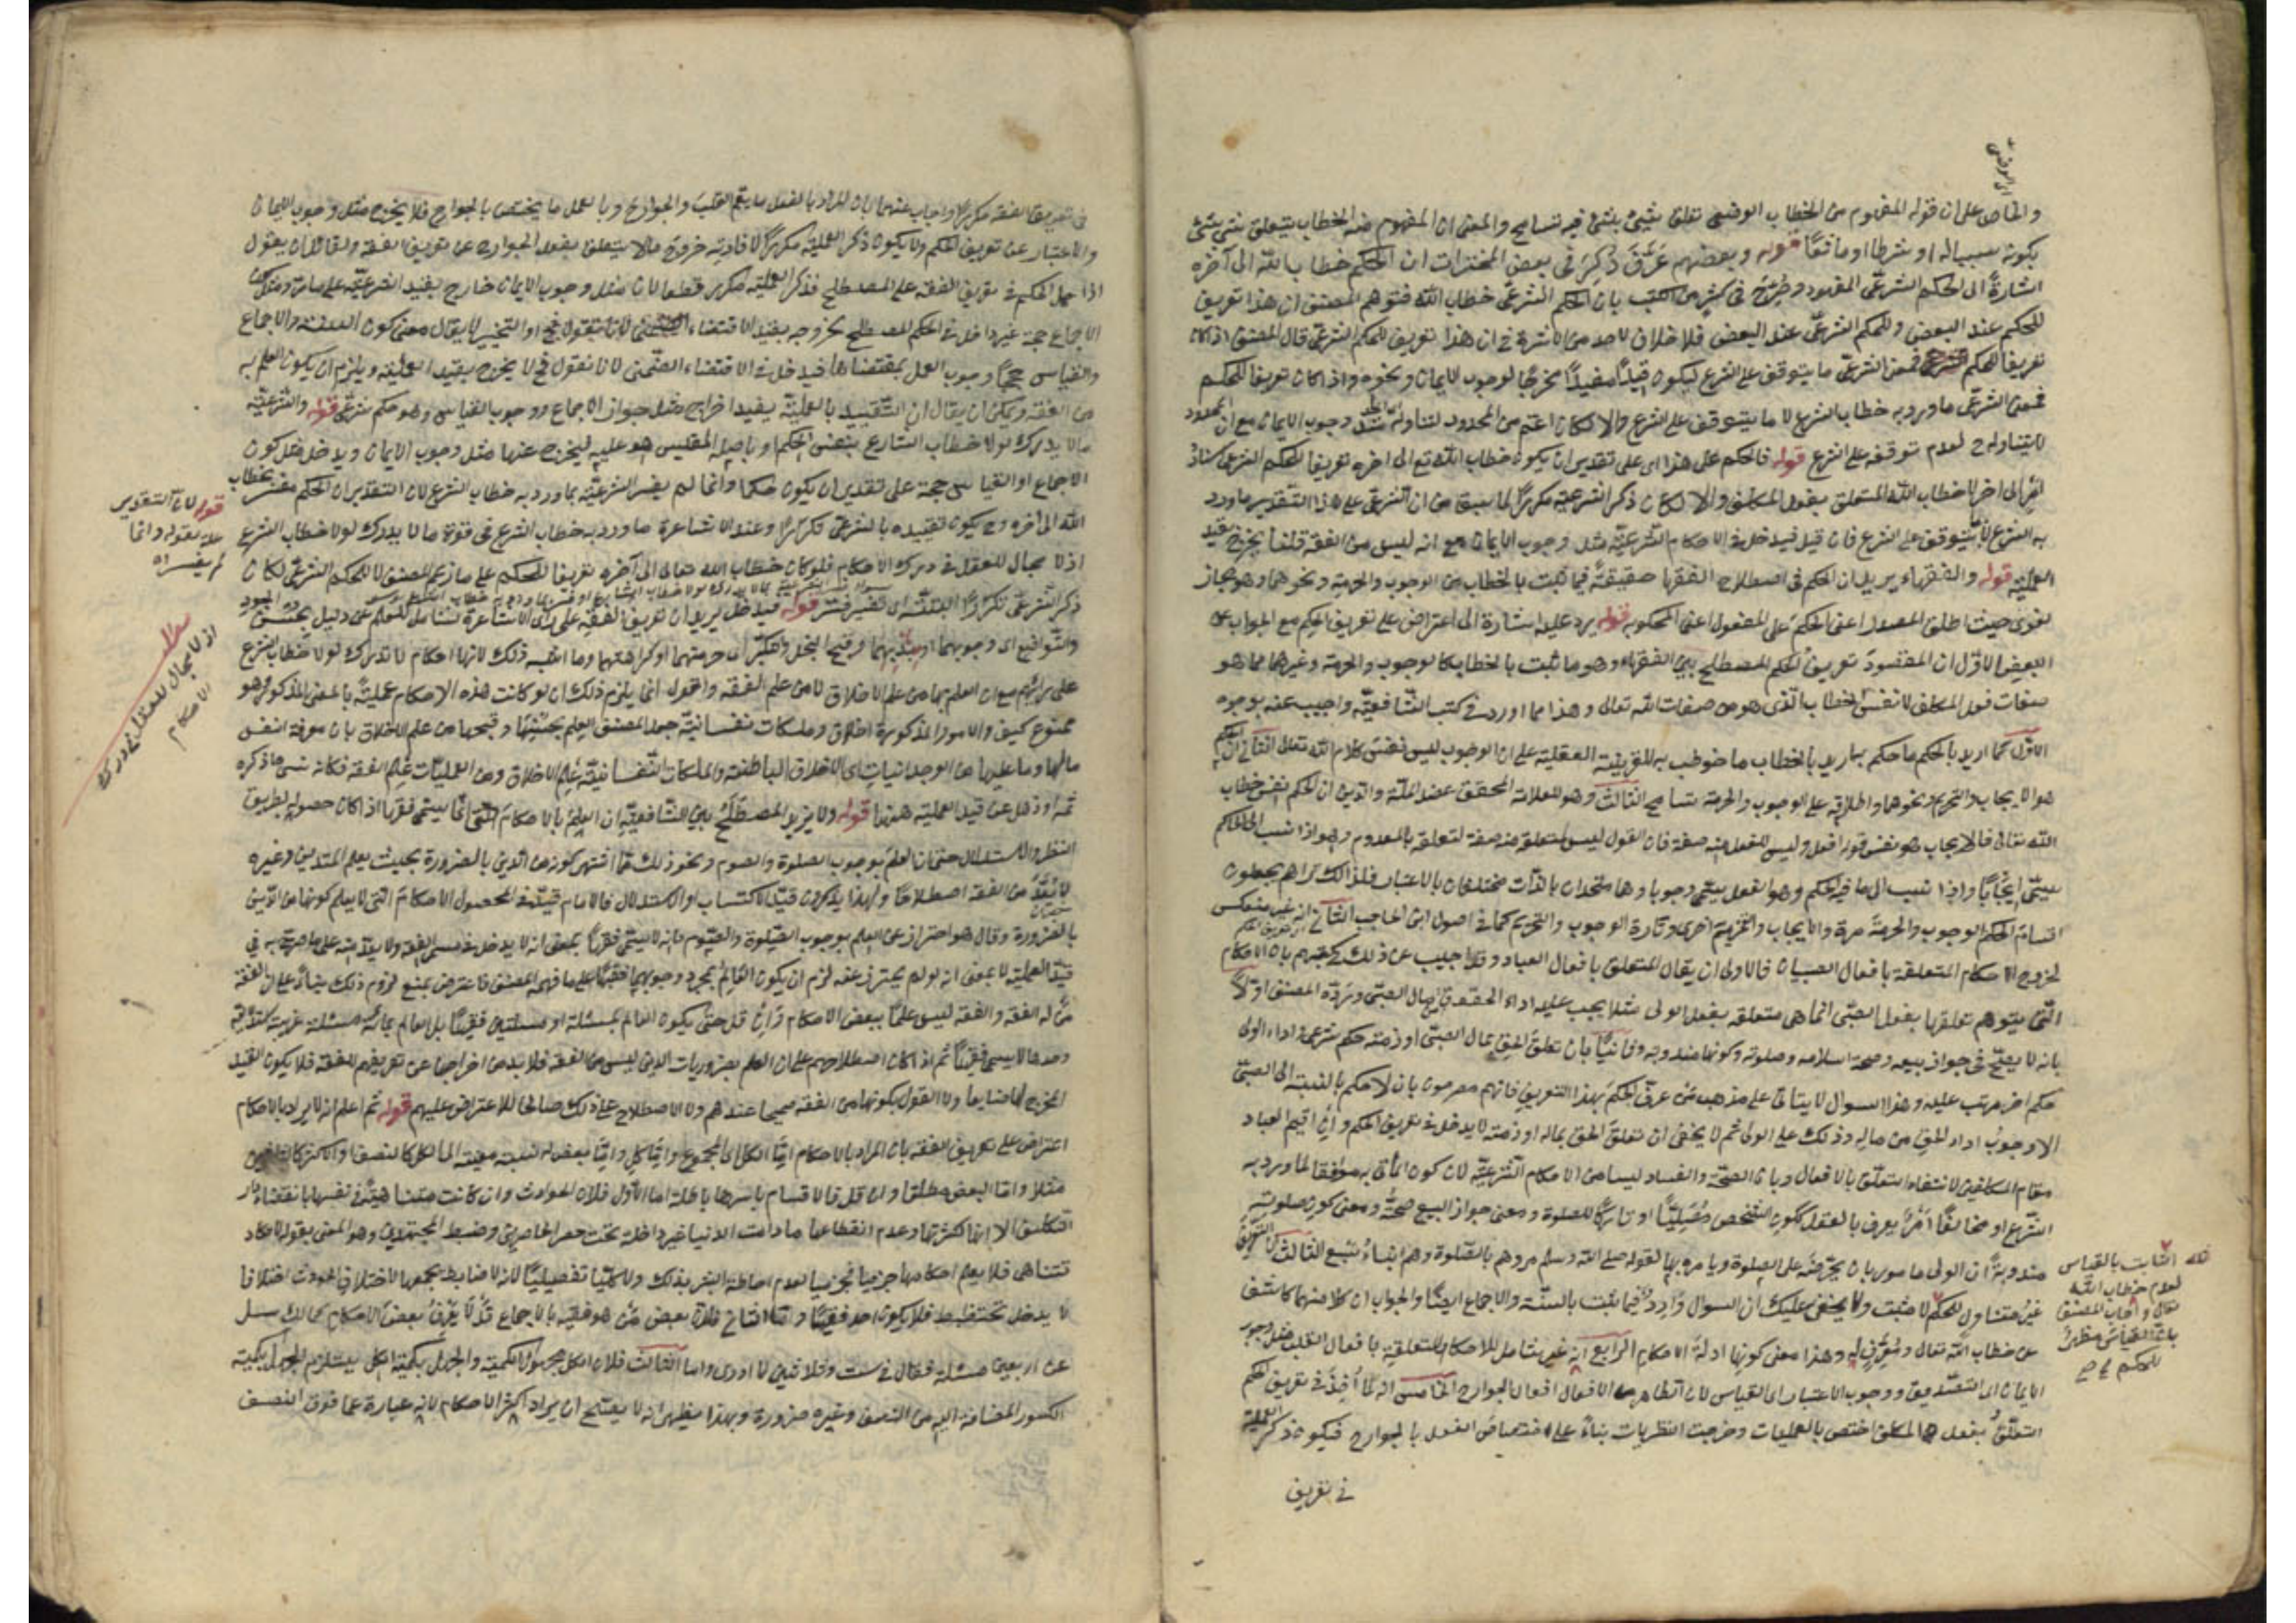 والحاصل على ان قوله المفهوم من الخطاب الوضعى تعلق شىء بشىء فيه تسامح والمعنى ان المفهوم منه الخطاب بتعلق شىء بشىء
بكونه سببا له او شرطا او مانعا قوله وبعضهم عرّف ذكر فى بعض المختصرات ان الحكم خطاب الله الى آخره
اشارة الى الحكم الشرعى المعهود وصرح فى كثير من الكتب بان الحكم الشرعى خطاب الله فتوهم المصنف ان هذا تعريف
للحكم عند البعض وللحكم الشرعى عند البعض فلا خلاف لاحد من الاشاعرة فى ان هذا تعريف للحكم الشرعى قال المصنف اذا كان
تعريفا للحكم فمعنى الشرعى ما يتوقف على الشرع ليكون قيدا مفيدا مخرجا لوجوب الايمان ونحوه واذا كان تعريفا للحكم
فمعنى الشرعى ما ورد به خطاب الشرع لا ما يتوقف على الشرع والا لكان اعم من المحدود لتناوله مثل وجوب الايمان مع ان المحدود
لا يتناوله لعدم توقفه على الشرع قوله فالحكم على هذا اى على تقدير ان يكون خطاب الله تع الى اخره تعريفا للحكم الشرعى اسناد
امر الى اخر لا خطاب الله المتعلق بفعل المكلف والا لكان ذكر الشرعية مكررا لما سبق من ان الشرعى على هذا التقدير ما ورد
به الشرع لا ما يتوقف على الشرع فان قيل فيدخل فى الاحكام الشرعية مثل وجوب الايمان مع انه ليس من الفقه قلنا يخرج بقيد
العملية قوله والفقهاء يريد ان الحكم فى اصطلاح الفقهاء حقيقة فيما ثبت بالخطاب من الوجوب والحرمة ونحوهما وهو مجاز
لغوى حيث اطلق المصدر اعنى الحكم على المفعول اعنى المحكوم به قوله يرد عليه اشارة الى اعتراض على تعريف الحكم مع الجواب عن
البعض الاول ان المقصود تعريف الحكم المصطلح بين الفقهاء وهو ما ثبت بالخطاب كالوجوب والحرمة وغيرهما مما هو
صفات فعل المكلف لا نفس الخطاب الذى هو من صفات الله تعالى وهذا مما اورد فى كتب الشافعية واجيب عنه بوجوه
الاول كما اريد بالحكم ما حكم به اريد بالخطاب ما خوطب به للقرينة العقلية على ان الوجوب ليس نفس كلام الله تعالى الثانى ان الحكم
هو الايجاب والتحريم ونحوهما واطلاقه على الوجوب والحرمة تسامح الثالث وهو للعلامة المحقق عضد الملة والدين ان الحكم نفس خطاب
الله تعالى فالايجاب هو نفس قوله افعل وليس للفعل منه صفة فان القول ليس لمتعلقه منه صفة لتعلقه بالمعدوم وهو اذا نسب الى الحاكم
يسمى ايجابا واذا نسب الى ما فيه الحكم وهو الفعل يسمى وجوبا وهما متحدان بالذات مختلفان بالاعتبار فلذلك تراهم يجعلون
اقسام الحكم الوجوب والحرمة مرة والايجاب والتحريم اخرى وتارة الوجوب والتحريم كما فى اصول ابن الحاجب الثانى انه غير منعكس
لخروج الاحكام المتعلقة بافعال الصبيان فالاولى ان يقال المتعلق بافعال العباد وقد اجيب عن ذلك فى كتبهم بان الاحكام
التى يتوهم تعلقها بفعل الصبى انما هى متعلقة بفعل الولى مثلا يجب عليه اداء الحقوق من مال الصبى وردّه المصنف اولا
بانه لا يصح فى جواز بيعه وصحة اسلامه وصلوته وكونها مندوبة وثانيا بان تعلق الحق بمال الصبى او ذمته حكم شرعى واداء الولى
حكم اخر مرتب عليه وهذا السوال لا يتأتى على مذهب من عرف الحكم بهذا التعريف فانهم مصرحون بان لا حكم بالنسبة الى الصبى
الا وجوب اداء الحق من ماله وذلك على الولى ثم لا يخفى ان تعلق الحق بماله او ذمته لا يدخل فى تعريف الحكم وان اقيم العباد
مقام المكلفين لانتفاء التعلق بالافعال وبان الصحة والفساد ليسا من الاحكام الشرعية لان كون المأتى به موافقا لما ورد به
الشرع او مخالفا امر يعرف بالعقل ككون الشخص مصليا او تاركا للصلوة ومعنى جواز البيع صحته ومعنى كون صلوته
مندوبة ان الولى مامور بان يحرضه على الصلوة ويامره بها لقوله صلى الله وسلم مروهم بالصلوة وهم ابناء سبع الثالث ان التعريف
غير متناول للحكم الثابت ولا يخفى عليك ان السوال وارد فيما يثبت بالسنة والاجماع ايضا والجواب ان كلا منهما كاشف
عن خطاب الله تعالى ومعرف له وهذا معنى كونها ادلة الاحكام الرابع انه غير شامل للاحكام المتعلقة بافعال القلب مثل وجوب
الايمان اى التصديق ووجوب الاعتبار اى القياس لان الظاهر من الافعال افعال الجوارح الخامس انه لما اخذ فى تعريف الحكم
التعلق بفعل المكلف اختص بالعمليات وخرجت النظريات بناء على اختصاص الفعل بالجوارح فيكون ذكر العملية
فى تعريف
الثابت بالقياس
لعدم خطاب الله
تعالى واجاب المصنف
بان القياس مظهر
للحكم
فى تعريف الفقه مكررا واجاب عنهما بان المراد بالفعل ما يعم القلب والجوارح وبالعمل ما يختص بالجوارح فلا يخرج مثل وجوب الايمان
والاعتبار عن تعريف الحكم ولا يكون ذكر العملية مكررا لافادته خروج ما لا يتعلق بفعل الجوارح عن تعريف الفقه ولقائل ان يقول
اذا حمل الحكم فى تعريف الفقه على المصطلح فذكر العملية مكرر قطعا لان مثل وجوب الايمان خارج بقيد الشرعية على ما مر ومثل كون
الاجماع حجة غير داخل فى الحكم المصطلح لخروجه بقيد الاقتضاء او التخيير لا يقال معنى كون السنة والاجماع
والقياس حججا وجوب العمل بمقتضاها فيدخل فى الاقتضاء الضمنى لانا نقول فح لا يخرج بقيد العملية ويلزم ان يكون العلم به
من الفقه ويمكن ان يقال ان التقييد بالعملية يفيد اخراج مثل جواز الاجماع ووجوب القياس وهو حكم شرعى قوله والشرعية
ما لا يدرك لولا خطاب الشارع بنفس الحكم او باصله المقيس هو عليه ليخرج عنها مثل وجوب الايمان ويدخل مثل كون
الاجماع او القياس حجة على تقدير ان يكون حكما وانما لم يفسر الشرعية بما ورد به خطاب الشرع لان التقدير ان الحكم مفسر بخطاب
الله الى آخره وح يكون تقييده بالشرعى تكرارا وعند الاشاعرة ما ورد به خطاب الشرع فى قوة ما لا يدرك لولا خطاب الشرع
اذ لا مجال للعقل فى درك الاحكام فلو كان خطاب الله تعالى الى آخره تعريفا للحكم على ما زعم المصنف لا للحكم الشرعى لكان
ذكر الشرعى تكرارا البتة اى تفسير فسّر قوله فيدخل يريد ان تعريف الفقه على رأى الاشاعرة شامل للعلم عن دليل بحسن الجود
والتواضع اى وجوبهما او ندبهما وقبح البخل والتكبر اى حرمتهما او كراهتهما وما اشبه ذلك لانها احكام لا تدرك لولا خطاب الشرع
على رأيهم مع ان العلم بها من علم الاخلاق لا من علم الفقه واقول انما يلزم ذلك ان لو كانت هذه الاحكام عملية بالمعنى المذكور وهو
ممنوع كيف والامور المذكورة اخلاق وملكات نفسانية جعل المصنف العلم بحسنها وقبحها من علم الاخلاق بان معرفة النفس
ما لها وما عليها من الوجدانيات اى الاخلاق الباطنة والملكات النفسانية علم الاخلاق ومن العمليات علم الفقه فكانه نسى ما ذكره
ثمه او ذهل عن قيد العملية ههنا قوله ولا يزيد المصطلح بين الشافعية ان العلم بالاحكام انما يسمى فقها اذا كان حصوله بطريق
النظر والاستدلال حتى ان العلم بوجوب الصلوة والصوم ونحو ذلك مما اشتهر كونه من الدين بالضرورة بحيث يعلم المتدين وغيره
لا يعد من الفقه اصطلاحا ولهذا يذكرون قيد الاكتساب او الاستدلال فالامام قيد فى المحصول الاحكام التى لا يعلم كونها من الدين
بالضرورة وقال هو احتراز عن العلم بوجوب الصلوة والصوم فانه لا يسمى فقها بمعنى انه لا يدخل فى مسمى الفقه ولا يعد منه على ما صرح به فى
قيد العملية لا بمعنى انه لو لم يحترز عنه لزم ان يكون العالم بمجرد وجوبهما فقيها على ما فهمه المصنف فاعترض بمنع لزوم ذلك بناء على ان الفقيه
من له الفقه والفقه ليس علما ببعض الاحكام وان قل حتى يكون العالم بمسئلة او مسئلتين فقيها بل العالم بمائة مسئلة غريبة استدلالية
وحدها لا يسمى فقيها ثم اذا كان اصطلاحهم على ان العلم بضروريات الدين ليس من الفقه فلا بد من اخراجها عن تعريفهم للفقه فلا يكون القيد
المخرج لها ضايعا ولا القول بكونها من الفقه صحيحا عندهم ولا الاصطلاح على ذلك صالحا للاعتراض عليهم قوله ثم اعلم انه لا يراد بالاحكام
اعتراض على تعريف الفقه بان المراد بالاحكام اما الكل اى المجموع واما كل واما بعض له نسبة معينة الى الكل كالنصف او الاكثر
مثلا واما البعض مطلقا وان قل فالاقسام باسرها باطلة اما الاول فلان الحوادث وان كانت متناهية فى نفسها بانقضاء دار
التكليف الا انها لكثرتها وعدم انقطاعها ما دامت الدنيا غير داخلة تحت حصر الحاصرين وضبط المجتهدين وهو المعنى بقوله لا تكاد
تتناهى فلا يعلم احكامها جزئيا فجزئيا لعدم احاطة البشر بذلك ولا كليا تفصيليا لانه لا ضابط يجمعها لاختلاف الحوادث اختلافا
لا يدخل تحت ضبط فلا يكون احد فقيها واما الثانى فلان بعض من هو فقيه بالاجماع قد لا يعرف بعض الاحكام كمالك سئل
عن اربعين مسئلة فقال فى ست وثلاثين لا ادرى واما الثالث فلان الكل مجهول الكمية والجهل بكمية الكل يستلزم الجهل بكمية
الكسور المضافة اليه من النصف وغيره ضرورة وبهذا يظهر انه لا يصح ان يراد اكثر الاحكام لانه عبارة عما فوق النصف
قوله لان التقدير
علة لقوله وانما
لم يفسر اه
اذ لا مجال للعقل فى درك
الاحكام